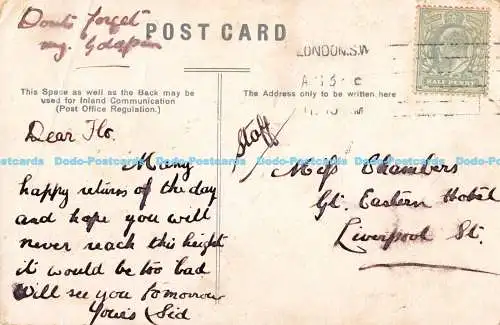 Dont forget
my.
POST CARD
LONDON.S.W
HALF PENNY
This Space as well as the Back may be
used for Inland Communication
(Post Office Regulation.)
The Address only to be written here
Dear Flo.
Many
happy returns of the day
and hope you will
never reach this height
it would be too bad
Will see you tomorrow
Yours Sid
Staff
Miss Chambers
Gt. Eastern Hotel
Liverpool St.
Dodo-Postcards Dodo-Postcards Dodo-Postcards Dodo-Postcards